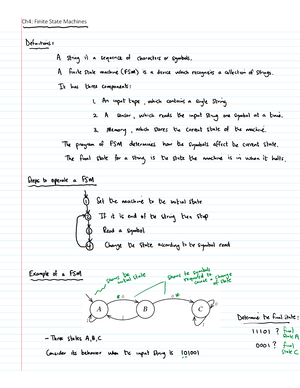 Ch4: Finite State Machines
Definitions:
A string is a sequence of characters or symbols.
A finite state machine (FSM) is a device which recognises a collection of strings.
It has three components:
1. An input tape, which contains a single string
2. A sensor, which reads the input string one symbol at a time.
3. Memory, which stores the current state of the machine.
The program of FSM determines how the symbols affect the current state.
The final state for a string is the state the machine is in when it halts.
Steps to operate a FSM
① Set the machine to the initial state
② If it is end of the string then stop
③ Read a symbol
④ Change the state according to the symbol read
Example of a FSM
shows the initial state
shows the symbols required to cause a change of state
A
B
C
Determine the final state:
11101 ? final state
0001 ? final state C
- Three states A,B,C
Consider its behavior when the input string is 101001